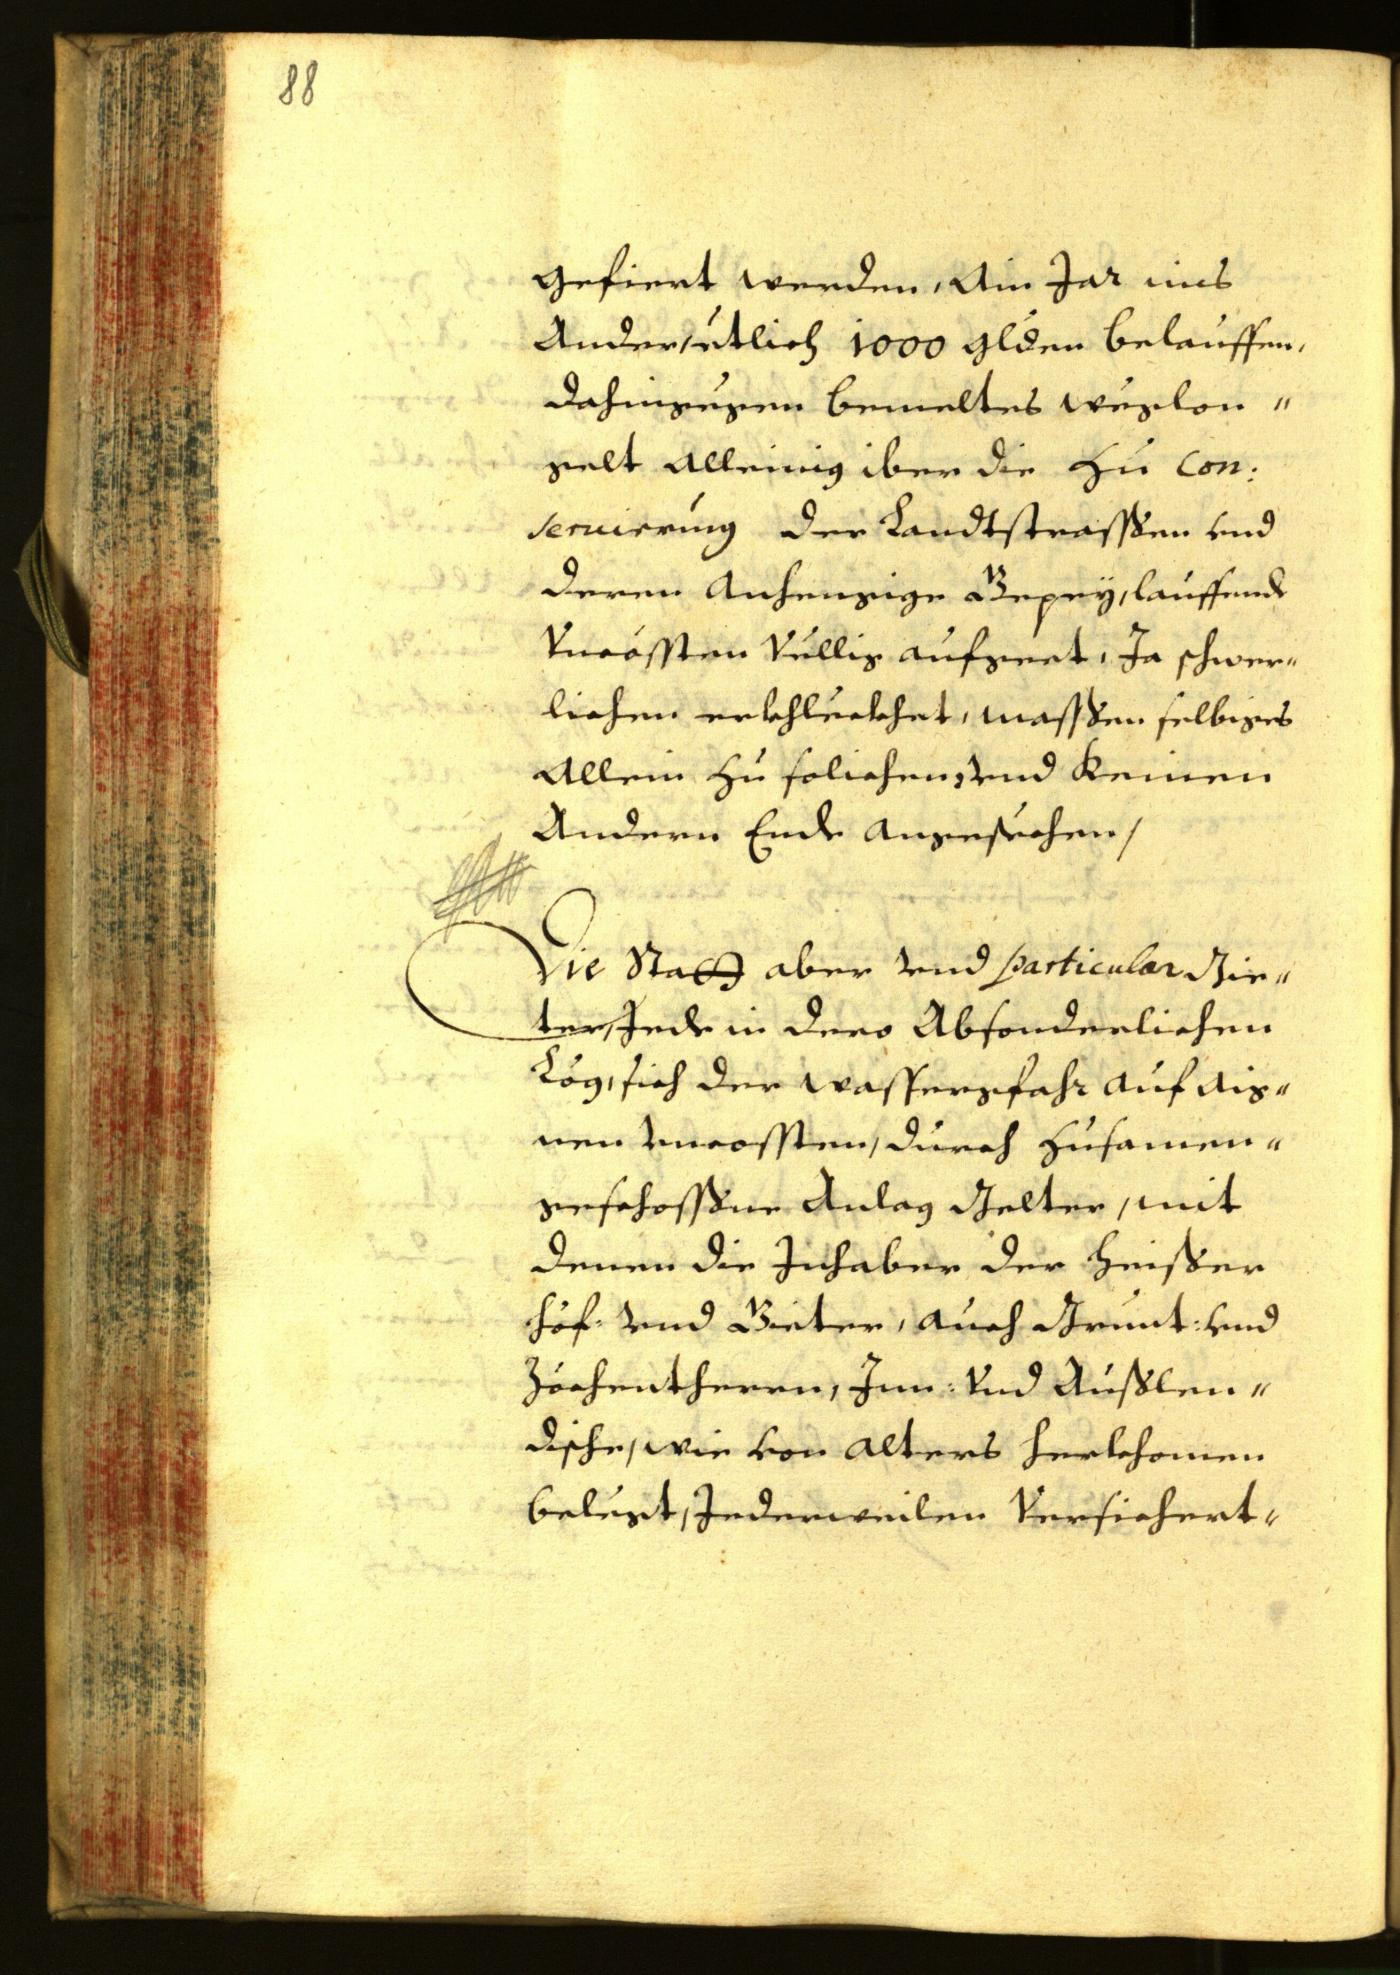 88
gefiert werden, Ain Jar ins
Ander, etlich 1000 glden belauffen,
dahingegen bemeltes weglon "
gelt alleinig iber die zu con:
seruierung der Landtstrassen vnd
deren anhengige Gepey, lauffende
Vncössten Vellig aufgeet, Ja schwer"
lichen erkhleckhet, massen selbiges
allein zu solichen, vnd keinen
Andern Ende angesechen /
Die Statt aber vnd particular Gie"
ter, Jede in dero Absonderlichen
Lög, sich der wassergfahr auf aig"
nen vncossten, durch zusamen"
geschossne Anlag Gelter, mit
denen die Inhaber der heisser
höf: vnd Gieter, auch Grunt: vnd
Zöchentherrn, Inn: Vnd Auslen"
dische, wie von alters herkhomen
belegt, Jederweilen Versichert"